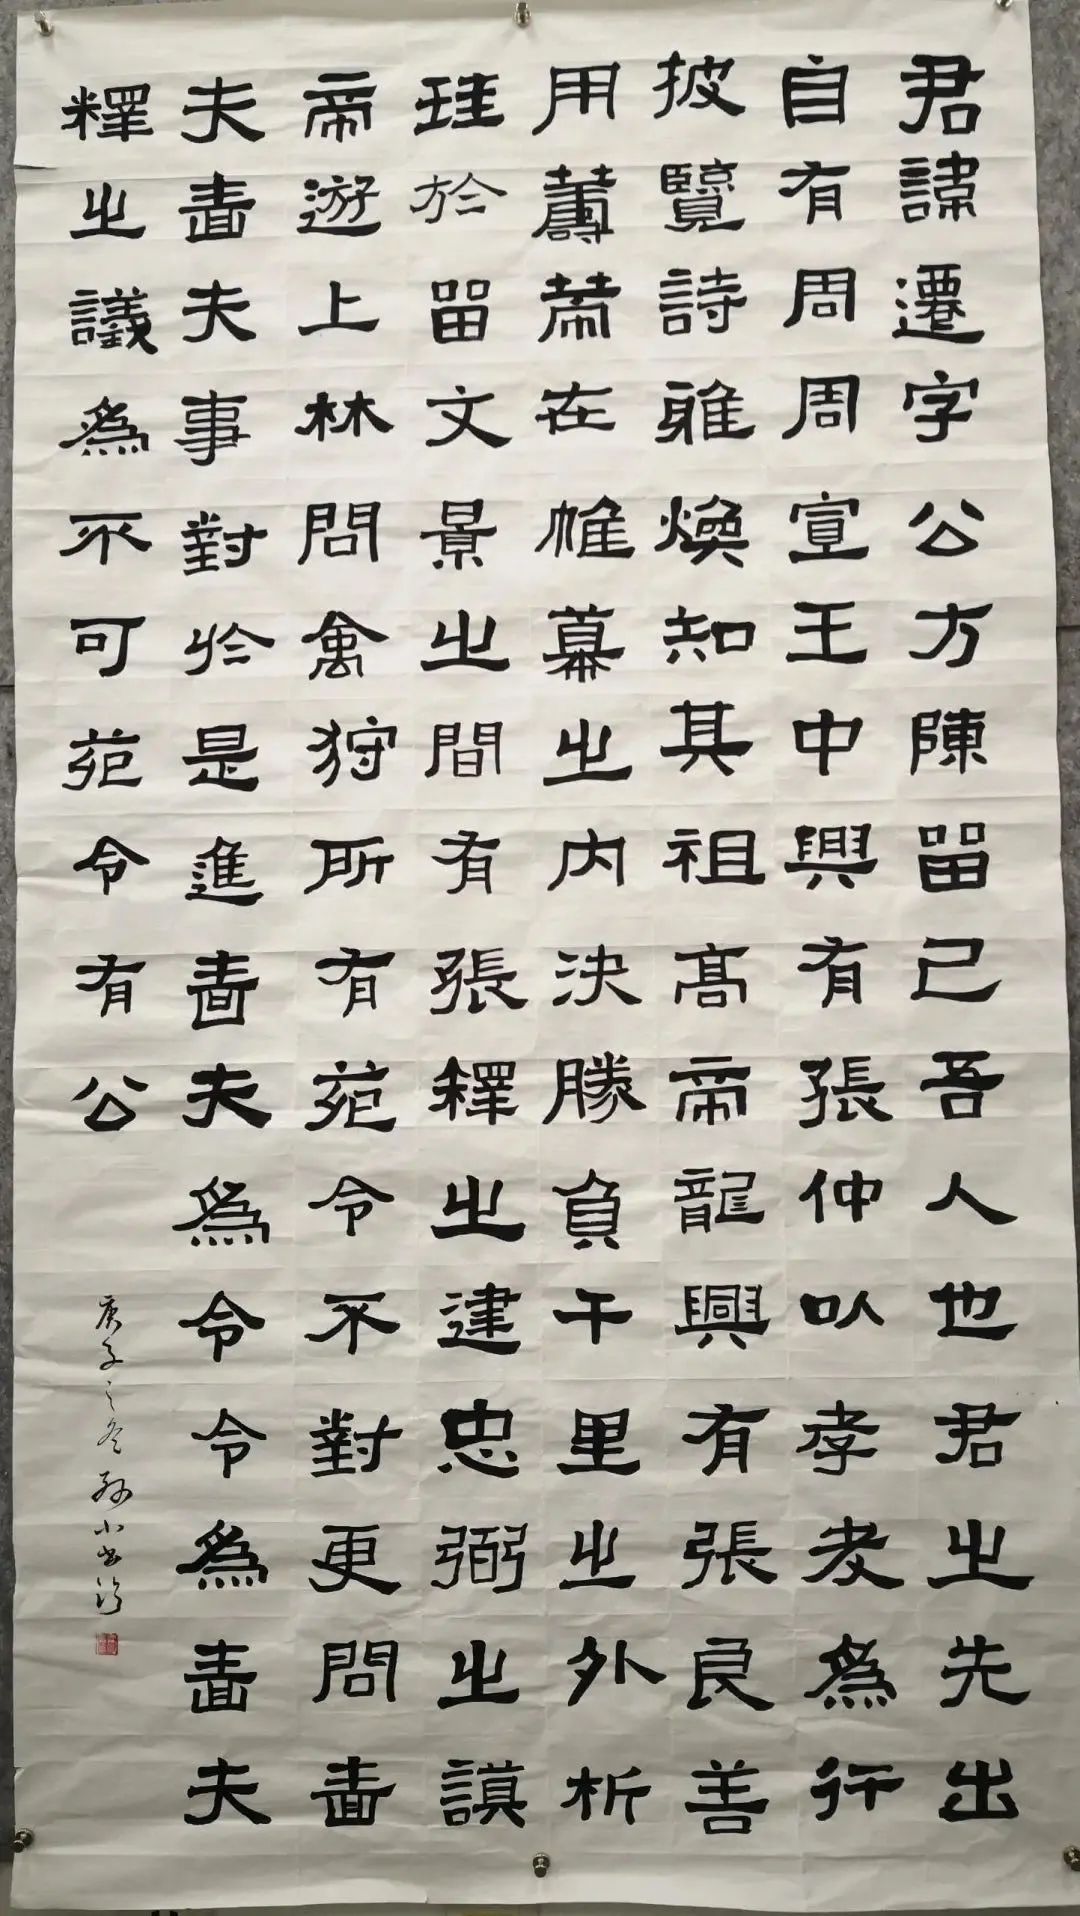 君諱遷字公方陳留己吾人也君之先出
自有周周宣王中興有張仲以孝友為行
披覽詩雅煥知其祖高帝龍興有張良善
用籌策在帷幕之内決勝負千里之外析
珪於留文景之間有張釋之建忠弼之謨
帝遊上林問禽狩所有苑令不對更問嗇
夫嗇夫事對於是進嗇夫為令令為嗇夫
釋之議為不可苑令有公
庚子之冬孙小